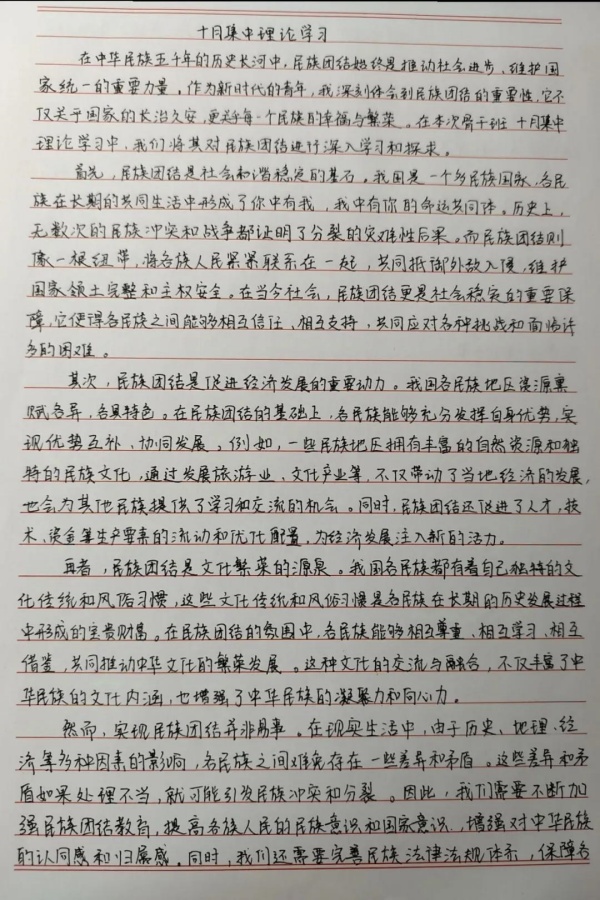 十月集中理论学习
在中华民族五千年的历史长河中，民族团结始终是推动社会进步、维护国
家统一的重要力量。作为新时代的青年，我深刻体会到民族团结的重要性，它不
仅关乎国家的长治久安，更关乎每一个民族的幸福与繁荣。在本次骨干班十月集中
理论学习中，我们将其对民族团结进行深入学习和探求。
首先，民族团结是社会和谐稳定的基石。我国是一个多民族国家，各民
族在长期的共同生活中形成了你中有我，我中有你的命运共同体。历史上，
无数次的民族冲突和战争都证明了分裂的灾难性后果。而民族团结则
像一根纽带，将各族人民紧紧联系在一起，共同抵御外敌入侵，维护
国家领土完整和主权安全。在当今社会，民族团结更是社会稳定的重要保
障，它使得各民族之间能够相互信任、相互支持，共同应对各种挑战和面临许
多的困难。
其次，民族团结是促进经济发展的重要动力。我国各民族地区资源禀
赋各异，各具特色。在民族团结的基础上，各民族能够充分发挥自身优势，实
现优势互补、协同发展。例如，一些民族地区拥有丰富的自然资源和独
特的民族文化，通过发展旅游业、文化产业等，不仅带动了当地经济的发展，
也会为其他民族提供了学习和交流的机会。同时，民族团结还促进了人才，技
术、资金等生产要素的流动和优化配置，为经济发展注入新的活力。
再者，民族团结是文化繁荣的源泉。我国各民族都有着自己独特的文
化传统和风俗习惯，这些文化传统和风俗习惯是各民族在长期的历史发展过程
中形成的宝贵财富。在民族团结的氛围中，各民族能够相互尊重、相互学习、相互
借鉴，共同推动中华文化的繁荣发展。这种文化的交流与融合，不仅丰富了中
华民族的文化内涵，也增强了中华民族的凝聚力和向心力。
然而，实现民族团结并非易事。在现实生活中，由于历史、地理、经
济等多种因素的影响，各民族之间难免存在一些差异和矛盾。这些差异和矛
盾如果处理不当，就可能引发民族冲突和分裂。因此，我们需要不断加
强民族团结教育，提高各族人民的民族意识和国家意识，增强对中华民族
的认同感和归属感。同时，我们还需要完善民族法律法规体系，保障各